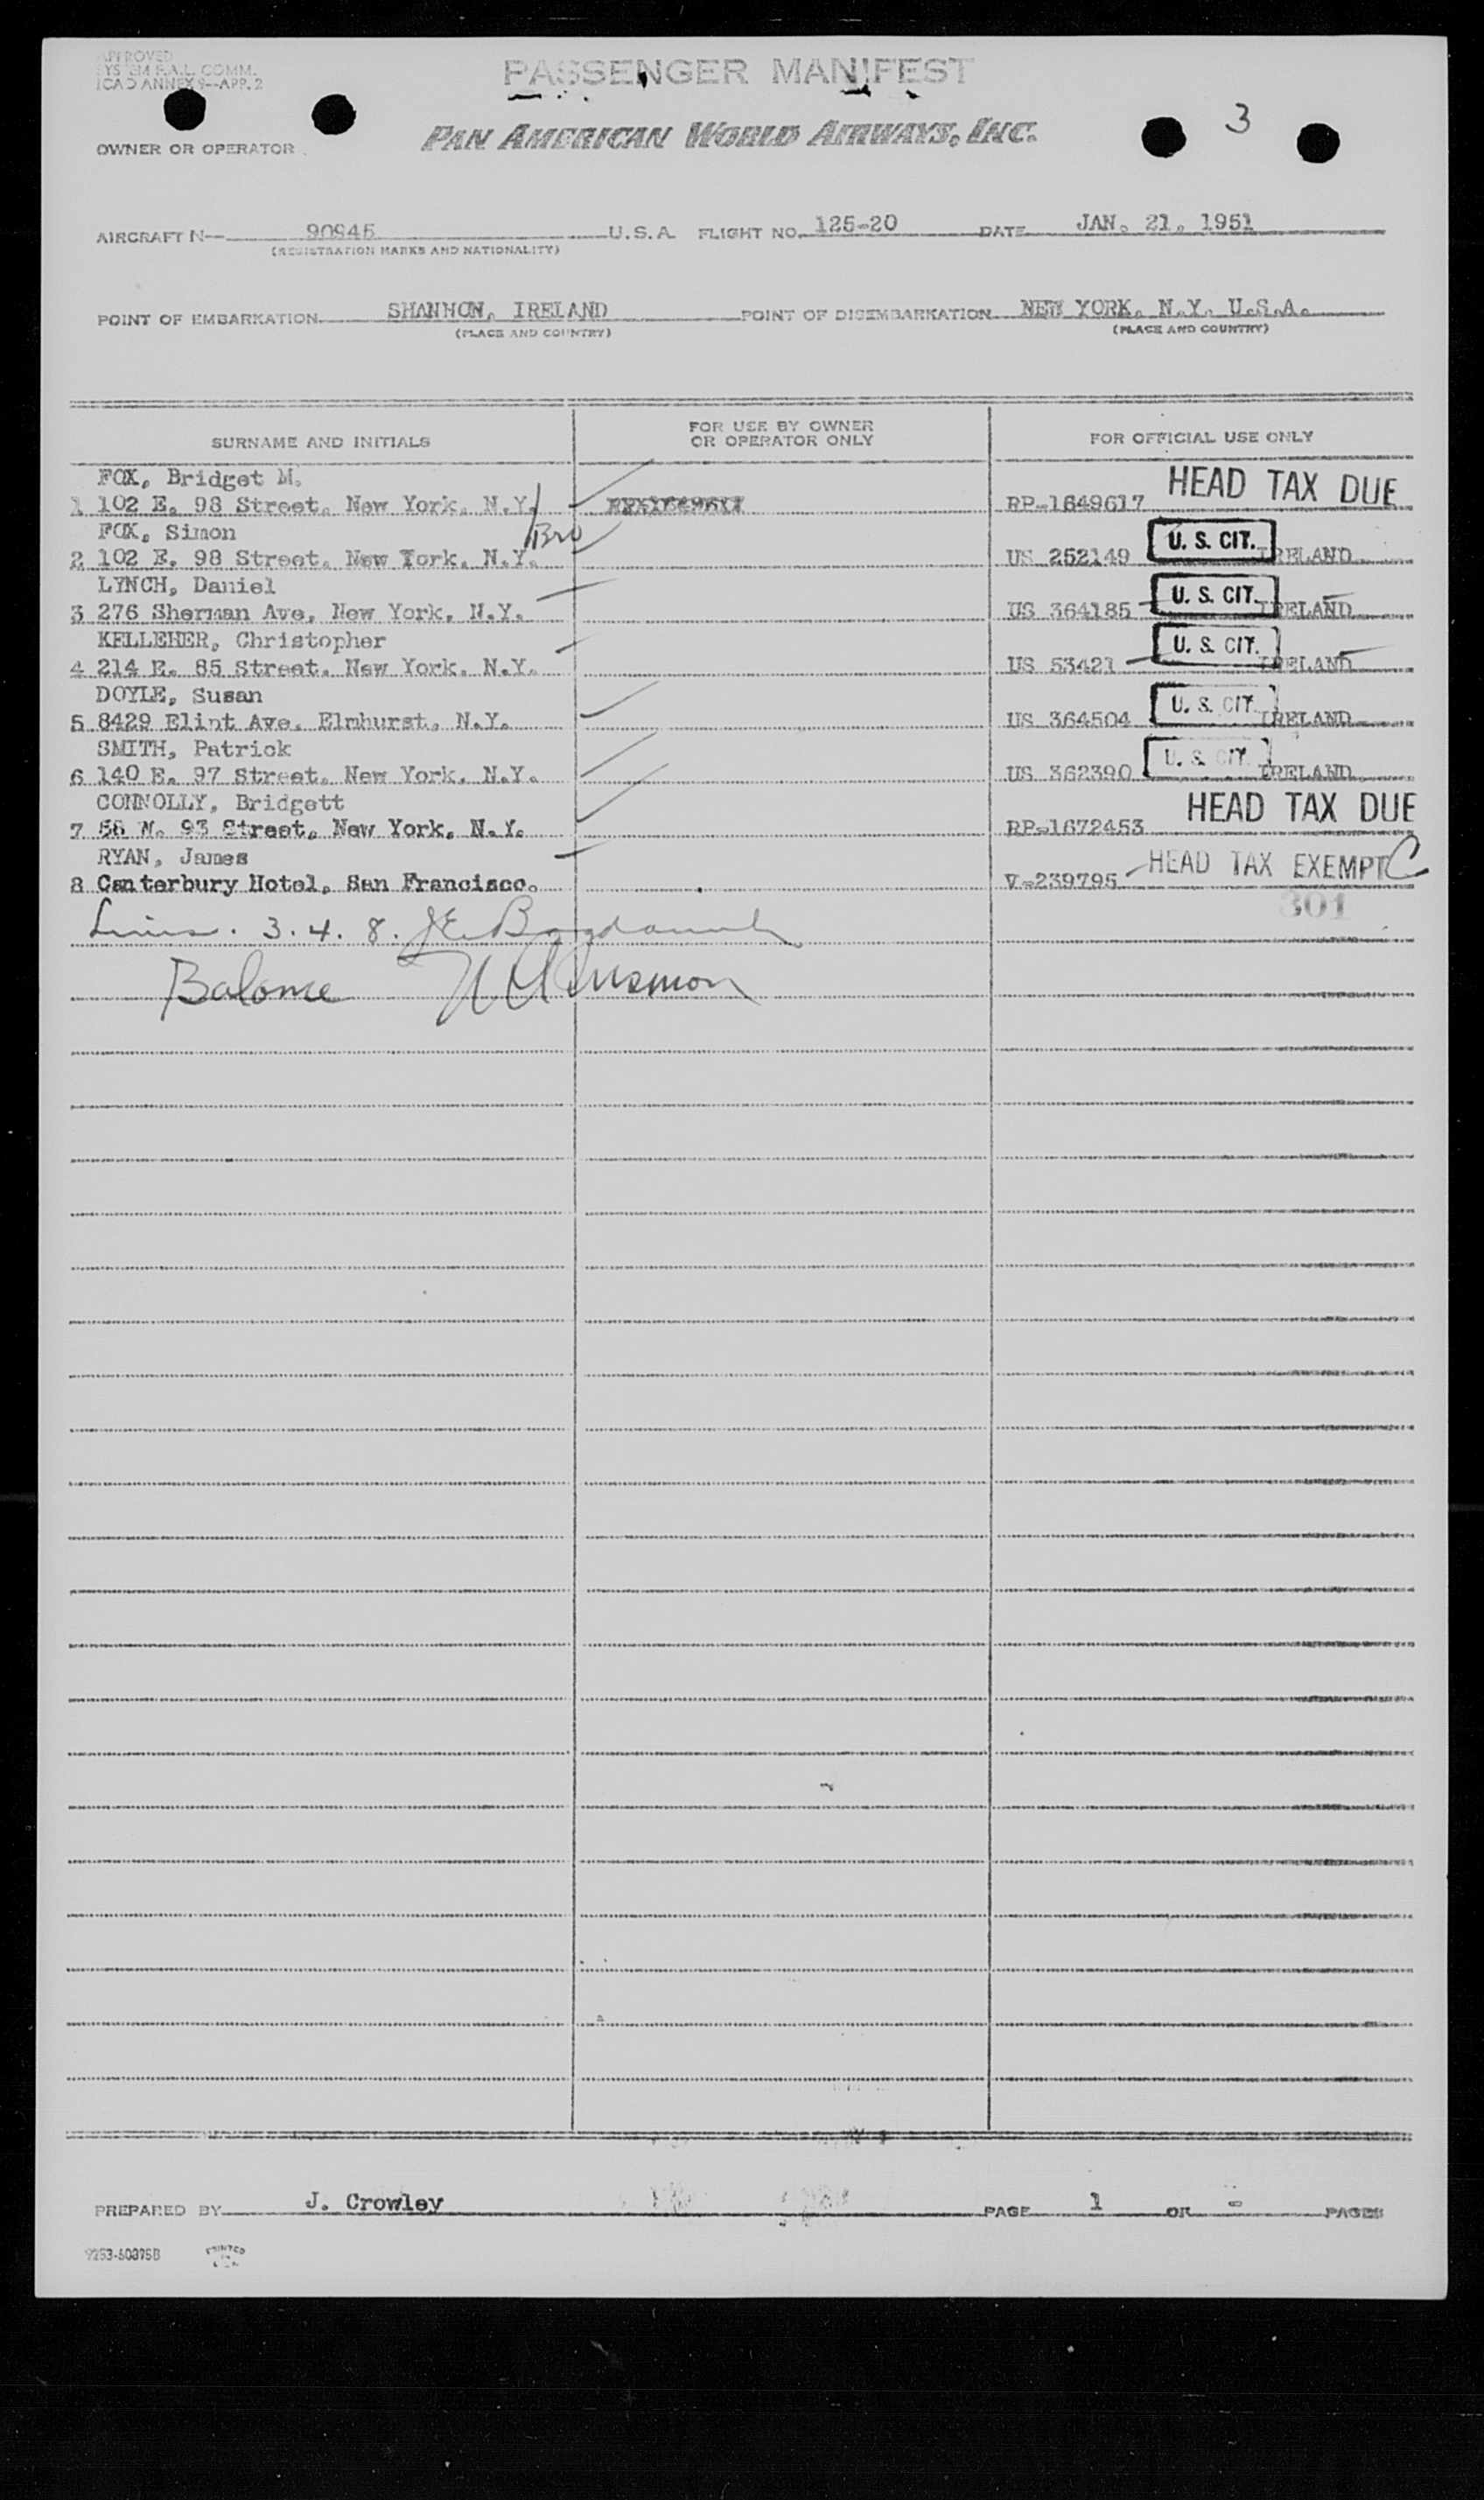 APPROVED
SYSTEM F.A.L. COMM.
ICAO ANNEX 9-APP. 2
PASSENGER MANIFEST
3
OWNER OR OPERATOR
PAN AMERICAN WORLD AIRWAYS, INC.
AIRCRAFT N— 90945 U.S.A. FLIGHT NO. 125-20 DATE JAN. 21, 1951
(REGISTRATION MARKS AND NATIONALITY)
POINT OF EMBARKATION SHANNON, IRELAND POINT OF DISEMBARKATION NEW YORK, N.Y. U.S.A.
(PLACE AND COUNTRY) (PLACE AND COUNTRY)
SURNAME AND INITIALS FOR USE BY OWNER OR OPERATOR ONLY FOR OFFICIAL USE ONLY
FOX, Bridget M.
1 102 E. 98 Street, New York, N.Y. RP-1649617 HEAD TAX DUE
FOX, Simon
2 102 E. 98 Street, New York, N.Y. US 252149 U. S. CIT. IRELAND
LYNCH, Daniel
3 276 Sherman Ave, New York, N.Y. US 364185 U. S. CIT. IRELAND
KELLEHER, Christopher
4 214 E. 85 Street, New York, N.Y. US 53421 U. S. CIT. IRELAND
DOYLE, Susan
5 8429 Elint Ave, Elmhurst, N.Y. US 364504 U. S. CIT. IRELAND
SMITH, Patrick
6 140 E. 97 Street, New York, N.Y. US 362390 U. S. CIT. IRELAND
CONNOLLY, Bridgett
7 56 W. 93 Street, New York, N.Y. RP-1672453 HEAD TAX DUE
RYAN, James
8 Canterbury Hotel, San Francisco. V-239795 HEAD TAX EXEMPT C
301
Lines. 3. 4. 8.
Balance
PREPARED BY J. Crowley PAGE 1 OF - PAGES
9253-50375B PRINTED